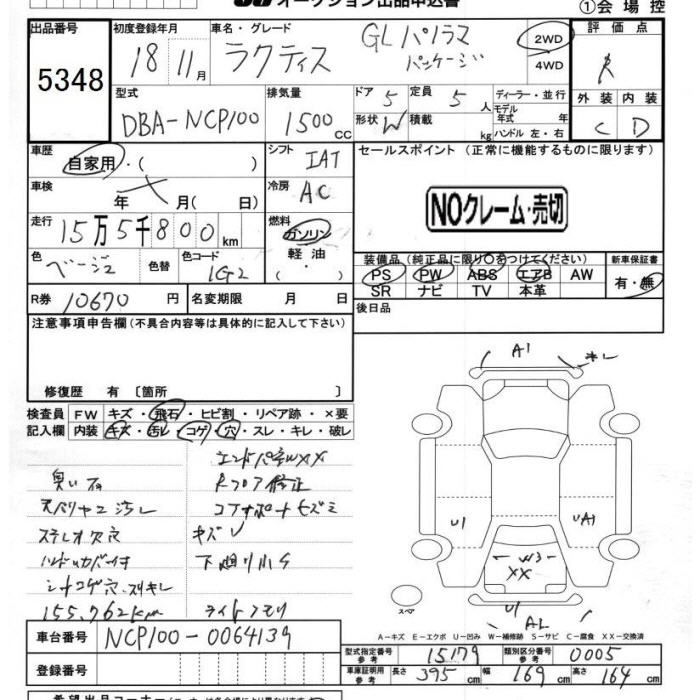 オークション出品申込書
①会場控
出品番号
5348
初度登録年月
18 11月
車名・グレード
ラクティス
GLパノラマ
パッケージ
2WD
4WD
評価点
R
外装 内装
C D
型式
DBA-NCP100
排気量
1500cc
ドア 5
形状 W
定員 5人
積載 kg
ディーラー・並行
モデル年式 年
ハンドル 左・右
車歴
自家用・( )
シフト
IAT
セールスポイント(正常に機能するものに限ります)
NOクレーム・売切
車検
年 月( 日)
冷房
AC
走行
15万5千800km
燃料
ガソリン
軽油
( ・ )
色
ベージュ
色替
色コード
1G2
装備品(純正品に限り○をつけてください)
PS PW ABS エアB AW
SR ナビ TV 本革
新車保証書
有・無
R券 10670円
名変期限 月 日
後日品
注意事項申告欄(不具合内容等は具体的に記入して下さい)
修復歴 有〔箇所 〕
検査員
記入欄
FW キズ・飛石・ヒビ割・リペア跡・×要
内装 キズ・汚レ・コゲ・穴・スレ・キレ・破レ
エンドパネルWXX
臭い有
Rフロア修正
天ベリヤニ汚レ
コアサポートキズミ
ステレオ欠穴
キズレ
ハンドルカバー付
下廻り小サ
シートコゲ穴スリキレ
155,762km
ライトクモリ
A1
キレ
U1
UA1
W3
XX
U1
AL
スペア
A-キズ E-エクボ U-凹み W-補修跡 S-サビ C-腐食 XX-交換済
車台番号
NCP100-0064139
登録番号
型式指定番号
参考
15179
類別区分番号
参考
0005
車庫証明用
参考
長さ 395cm
幅 169cm
高さ 164cm
希望出品コーナー